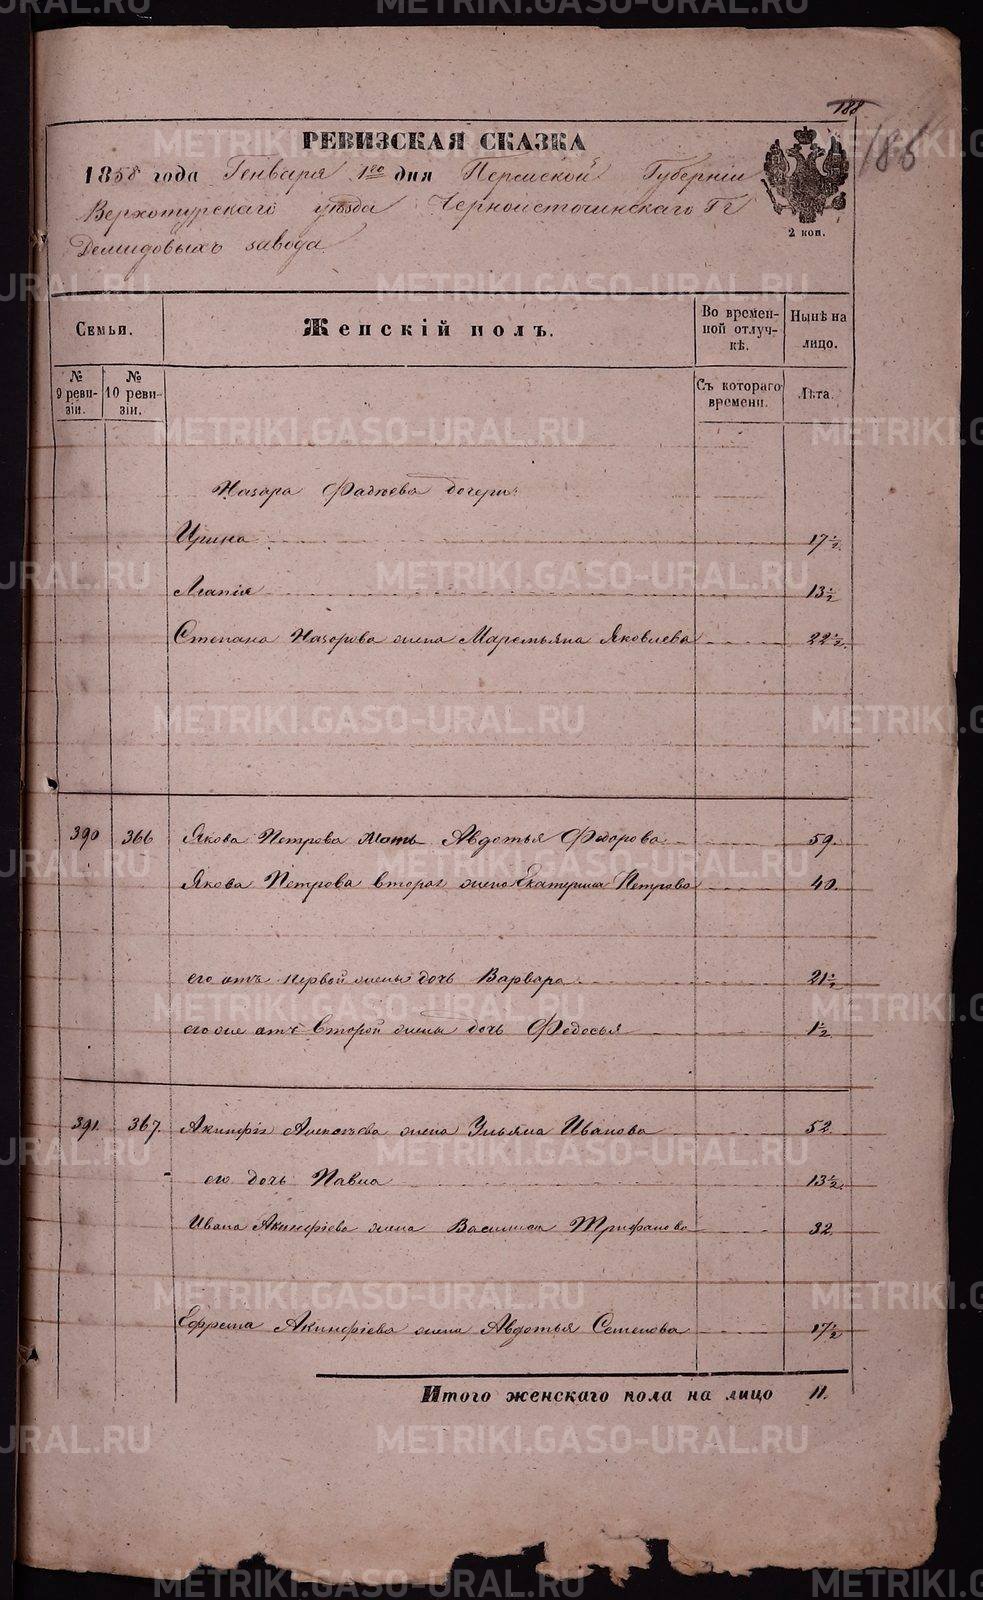 188
186
РЕВИЗСКАЯ СКАЗКА
1858 года Генваря 1го дня Пермской Губерніи
Верхотурскаго уѣзда Черноисточинскаго Гг
Демидовыхъ завода
2 коп.
Семьи.
Женскій полъ.
Во временной отлучкѣ.
Нынѣ на лицо.
№ 9 ревизіи.
№ 10 ревизіи.
Съ котораго времени.
Лѣта.
Назара Фадѣева дочери
Ирина 17½
Агапія 13½
Степана Назарова жена Маремьяна Яковлева 22½
390 366 Якова Петрова мать Авдотья Федорова 59.
Якова Петрова вторая жена Екатерина Петрова 40.
его отъ первой жены дочь Варвара 21½
его же отъ второй жены дочь Федосья 1½
391 367. Акинфія Алексѣева жена Ульяна Иванова 52.
его дочь Павла 13½
Ивана Акинфіева жена Василиса Трифанова 32.
Ефрема Акинфіева жена Авдотья Семенова 17½
Итого женскаго пола на лицо 11.
METRIKI.GASO-URAL.RU